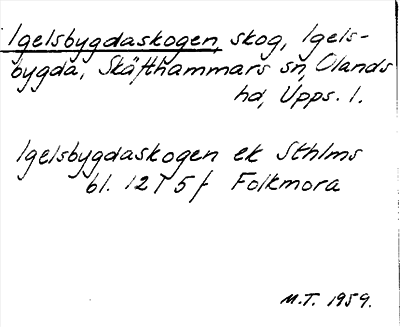 Igelsbygdaskogen, skog, Igels-
bygda, Skäfthammars sn, Olands
hd, Upps. l.
Igelsbygdaskogen ek Sthlms
bl. 12 I 5 f Folkmora
M.T. 1959.